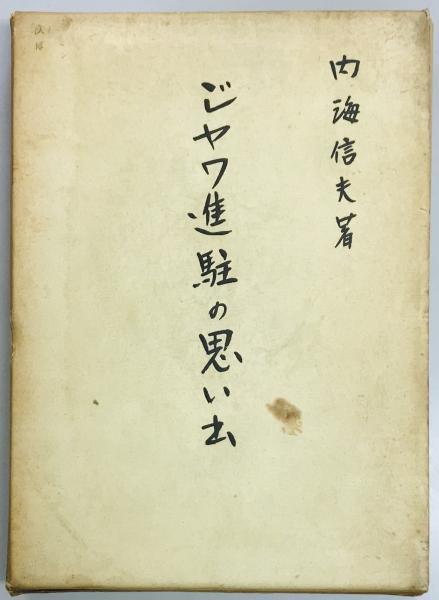 内海信夫著
ジャワ進駐の思い出